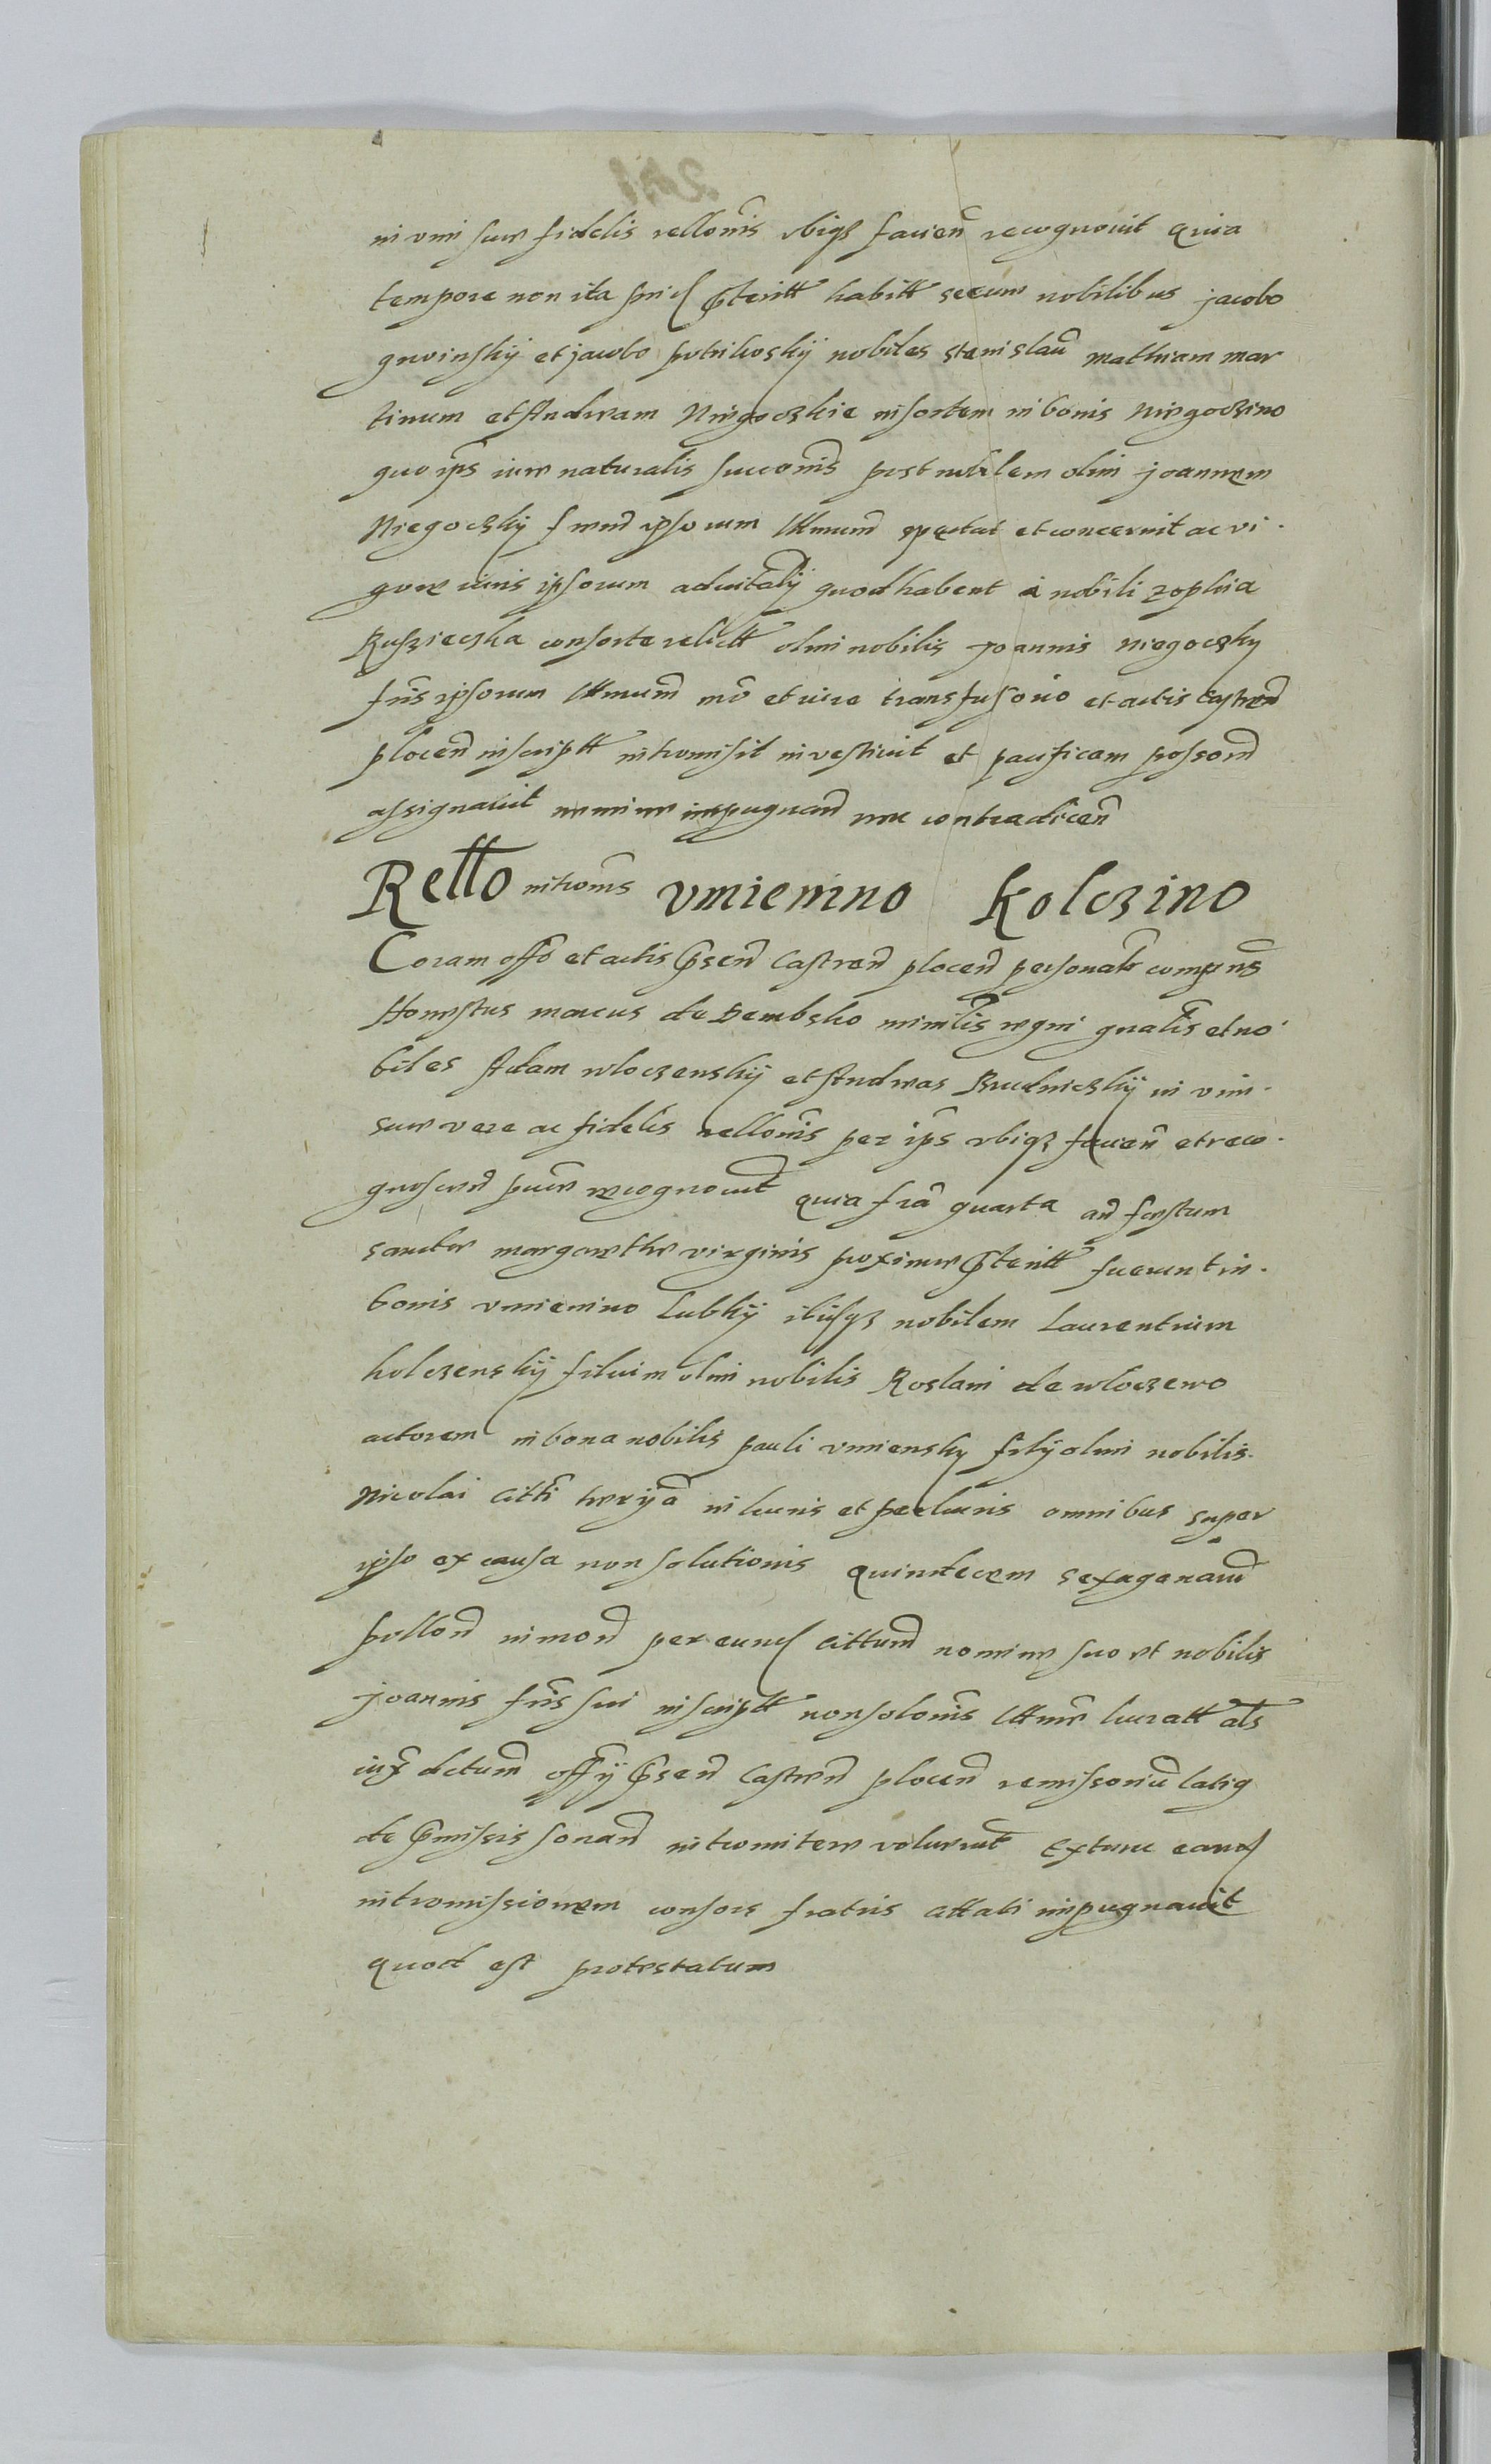 in vim sue fidelis rellonis ubiqz facien recognovit quia
tempore non ita prid preteritt habitt secum nobilibus jacobo
gnoinskij et jacobo petrikoskij nobiles stanislau mathiam mar
tinum et Andream Niegoczkie in sortem in bonis Niegoczino
quo ips iure naturalis succonis post nobilem olim joannem
Niegoczkij ipsorum spectat et concernit ac vi
gore iuris ipsorum advitalij quod habent a nobili zophia
Rusziecska consorte relictt olim nobilis joannis niegoczky
fris ipsorum et iure transfusorio et actis castren
plocen inscriptt intromisit investivit et pacificam posson
assignavit nemine inpugnan nec contradicen
Rello intromis vmienino Kolczino
Coram offo et actis presen Castren plocen personatr compns
Honestus marcus de Dembsko minrlis regni gnalis et no
biles Adam wloczenskij et Andreas Rudniczkij in vim
sue vere ac fidelis rellonis per ips ubiqz facien et reco
gnoscen recognovit quia fria quarta an festum
sancte margarethe virginis proxime preteritt fuerunt in
bonis vmienino Lubkij ibiqz nobilem Laurentium
kolczenskij filium olim nobilis Roslani de wloczewo
actorem in bona nobilis pauli vmiensky filij olim nobilis
Nicolai citti in lucris et perlucris omnibus super
ipso ex causa non solutionis quindecem sexagenaru
pollon in mon per eund cittum nomine suo et nobilis
joannis fris sui inscriptt non solonis lucratt als
iux dctum offij presen Castren plocen remissoriu
de premissis sonan intromitere voluerunt Extunc eand
intromissionem consors fratris attati inpugnavit
quod est protestatum